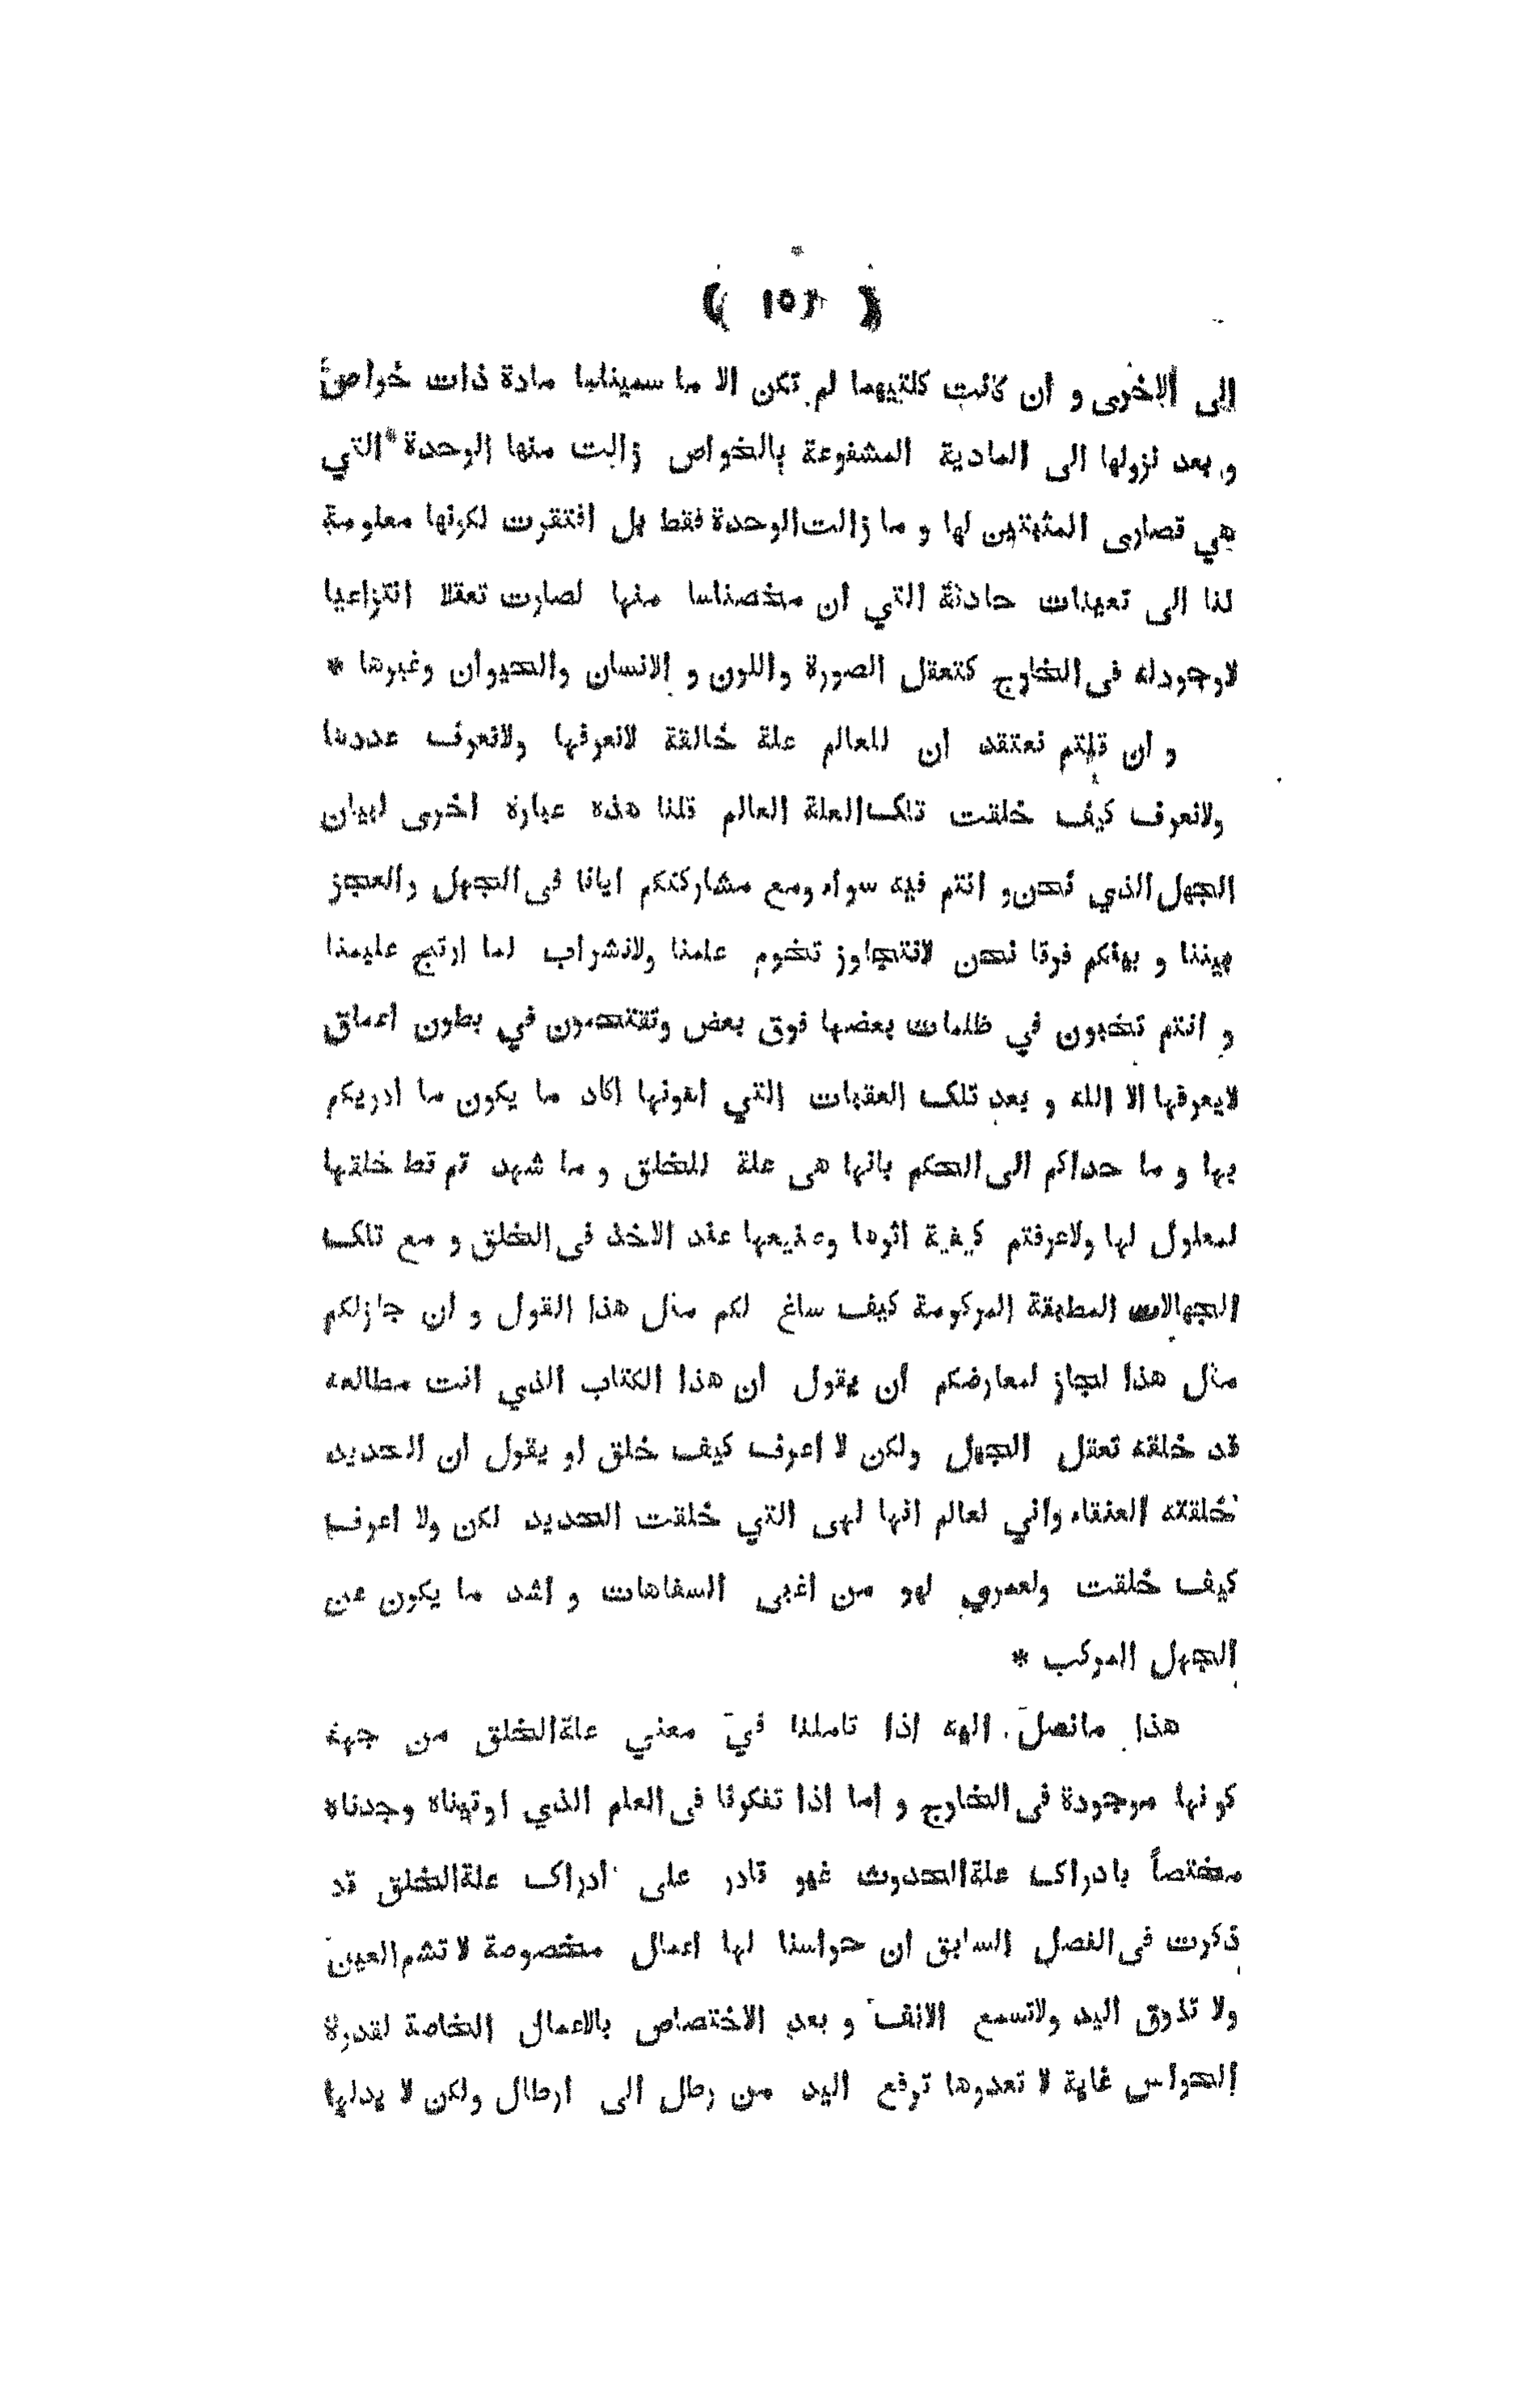 الى الاخرى و ان كانت كلتيهما لم تكن الا ما سميناها مادة ذات خواص
و بعد نزولها الى المادية المشفوعة بالخواص زالت منها الوحدة التي
هي قصارى المثبتين لها و ما زالت الوحدة فقط بل افتقرت لكونها معلومة
لنا الى تعينات حادثة التي ان محصناها منها لصارت تعقلا انتزاعيا
لاوجودله فى الخارج كتعقل الصورة واللون و الانسان والحيوان وغيرها *
و ان قلتم نعتقد ان للعالم علة خالقة لانعرفها ولانعرف عددها
ولانعرف كيف خلقت تلك العلة العالم قلنا هذه عبارة اخرى لبيان
الجهل الذي نحن و انتم فيه سواء ومع مشاركتكم ايانا فى الجهل والعجز
بيننا و بينكم فرقا نحن لانتجاوز تخوم علمنا ولانشراب لما ارتج علينا
و انتم تخبون في ظلمات بعضها فوق بعض وتقتحمون في بطون اعماق
لايعرفها الا الله و بعد تلك العقبات التي اهونها اكاد ما يكون ما ادريكم
بها و ما حداكم الى الحكم بانها هى علة للخلق و ما شهد تم قط خلقها
لمعلول لها ولاعرفتم كيفية اثرها وصنيعها عند الاخذ فى الخلق و مع تلك
الجهالات المطبقة المركومة كيف ساغ لكم مثل هذا القول و ان جازلكم
مثل هذا لجاز لمعارضكم ان يقول ان هذا الكتاب الذي انت مطالعه
قد خلقه تعقل الجهل ولكن لا اعرف كيف خلق او يقول ان الحديد
خلقته العنقاء واني لعالم انها لهى التي خلقت الحديد لكن ولا اعرف
كيف خلقت ولعمري لهو من اغبى السفاهات و اشد ما يكون عن
الجهل المركب *
هذا مانصل اليه اذا تاملنا في معني علة الخلق من جهة
كونها موجودة فى الخارج و اما اذا تفكرنا فى العلم الذي اوتيناه وجدناه
مختصاً بادراك علة الحدوث فهو قادر على ادراك علة الخلق قد
ذكرت فى الفصل السابق ان حواسنا لها اعمال مخصوصة لا تشم العين
ولا تذوق اليد ولاتسمع الانف و بعد الاختصاص بالاعمال الخاصة لقدرة
الحواس غاية لا تعدوها ترفع اليد من رطل الى ارطال ولكن لا يدلها